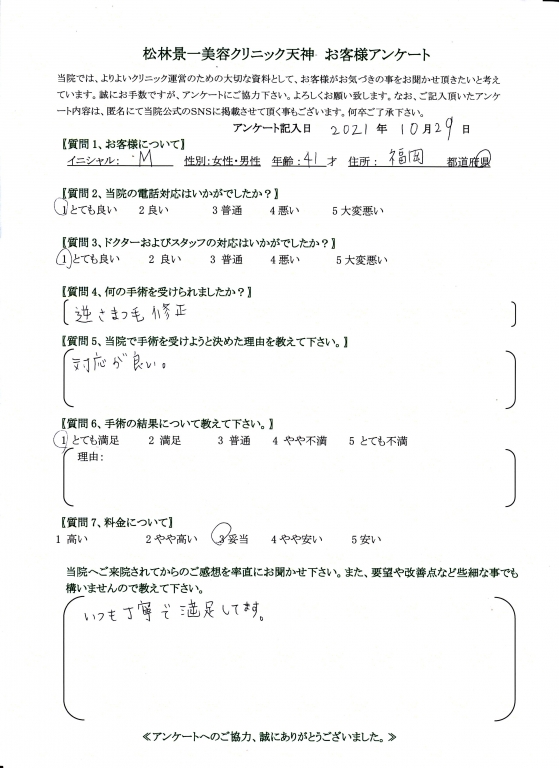 松林景一美容クリニック天神 お客様アンケート
当院では、よりよいクリニック運営のための大切な資料として、お客様がお気づきの事をお聞かせ頂きたいと考え
ています。誠にお手数ですが、アンケートにご協力下さい。よろしくお願い致します。なお、ご記入頂いたアンケ
ート内容は、匿名にて当院公式のSNSに掲載させて頂く事もございます。何卒ご了承下さい。
アンケート記入日 2021年 10月29日
【質問1、お客様について】
イニシャル: M 性別:女性・男性 年齢:41才 住所: 福岡 都道府県
【質問2、当院の電話対応はいかがでしたか?】
1とても良い 2良い 3普通 4悪い 5大変悪い
【質問3、ドクターおよびスタッフの対応はいかがでしたか?】
1とても良い 2 良い 3 普通 4悪い 5大変悪い
【質問4、何の手術を受けられましたか?】
逆さまつ毛修正
【質問5、当院で手術を受けようと決めた理由を教えて下さい。】
対応が良い。
【質問6、手術の結果について教えて下さい。】
1 とても満足 2 満足 3 普通 4 やや不満 5 とても不満
理由:
【質問7、料金について】
1 高い 2やや高い 3妥当 4やや安い 5安い
当院へご来院されてからのご感想を率直にお聞かせ下さい。また、要望や改善点など些細な事でも
構いませんので教えて下さい。
いつも丁寧で満足してます。
≪アンケートへのご協力、誠にありがとうございました。≫